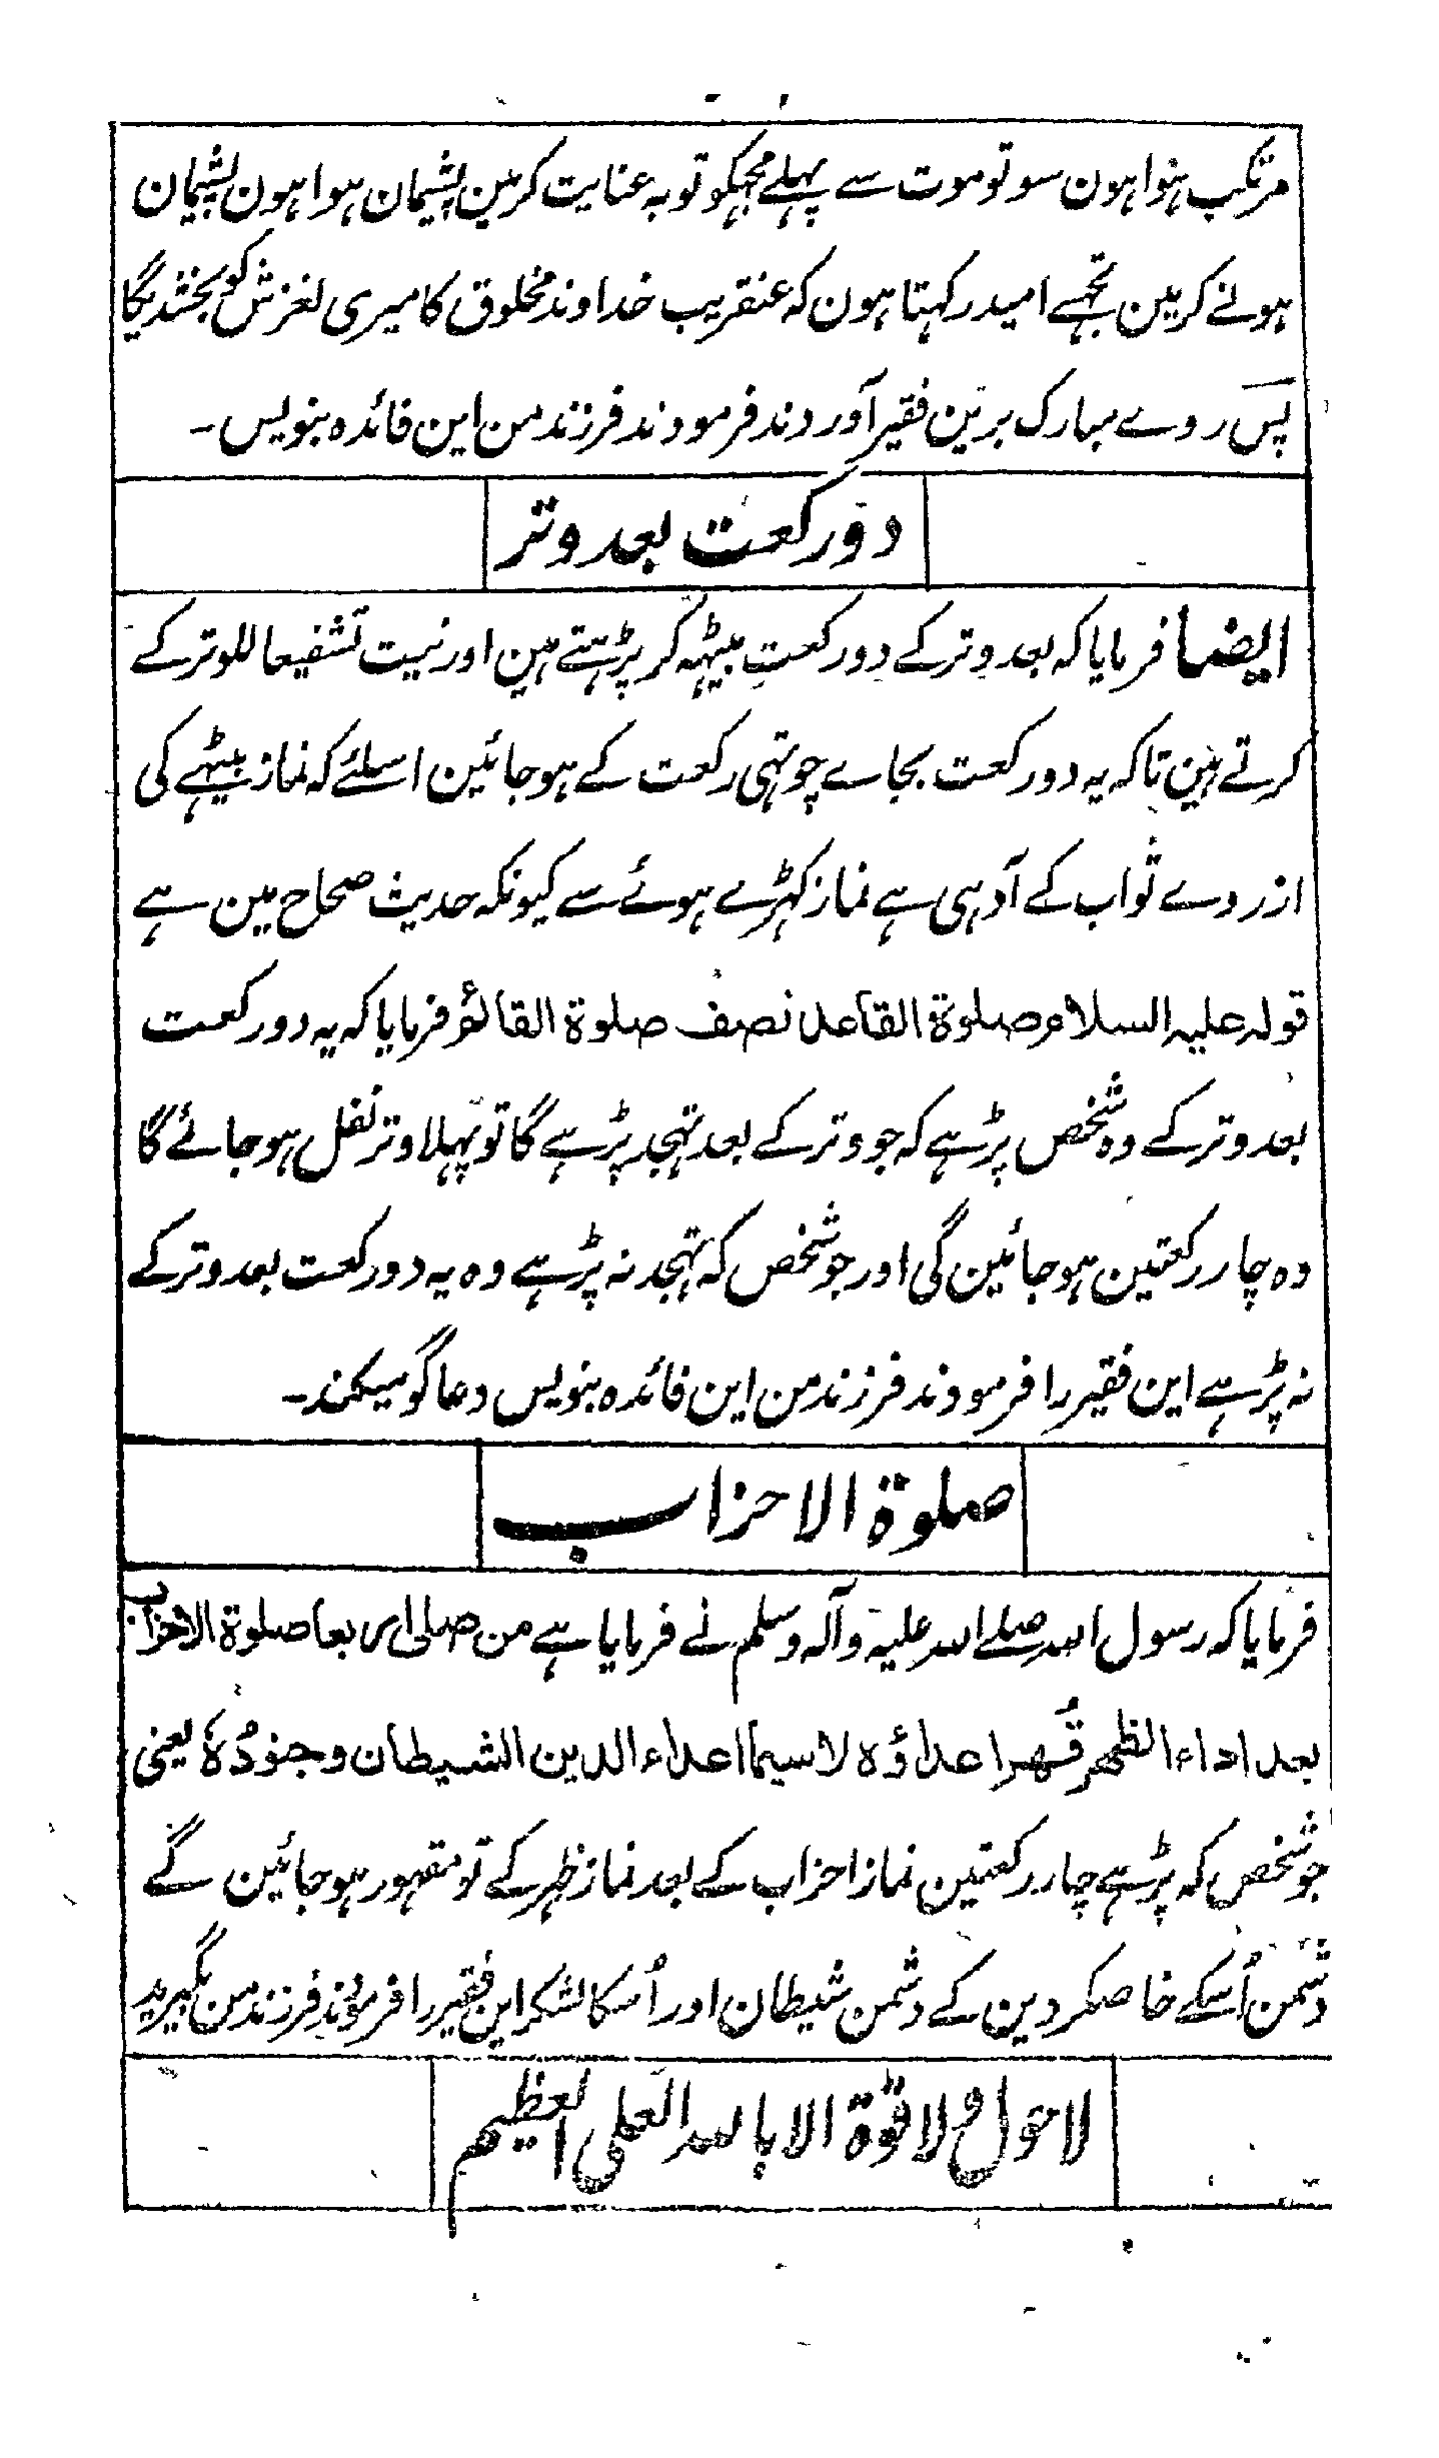 مرتکب ہوا ہون سو تو موت سے پہلے مجہکو توبہ عنایت کر مین پشیمان ہوا ہون پشیمان
ہونے کر مین تجہے امید رکہتا ہون کہ عنقریب خداوند مخلوق کا میری لغزش کو بخشدیگا
پس روے مبارک برین فقیر آوردند فرمودند فرزند من این فائدہ بنویس۔
دو رکعت بعد وتر
ایضا فرمایا کہ بعد وتر کے دو رکعت بیٹہہ کر پڑہتے ہین اور نیت تشفیعا للوتر کے
کرتے ہین تاکہ یہ دو رکعت بجاے چوتہی رکعت کے ہو جائین اسلئے کہ نماز بیٹہے کی
از روے ثواب کے آدہی ہے نماز کہڑے ہوئے سے کیونکہ حدیث صحاح مین ہے
قولہ علیہ السلام صلوة القاعد نصف صلوة القائم فرمایا کہ یہ دو رکعت
بعد وتر کے وہ شخص پڑہے کہ جو وتر کے بعد تہجد پڑہے گا تو پہلا وتر نفل ہو جائے گا
وہ چار رکعتین ہو جائین گی اور جو شخص کہ تہجد نہ پڑہے وہ یہ دو رکعت بعد وتر کے
نہ پڑہے این فقیر را فرمودند فرزند من این فائدہ بنویس دعا گو میکند۔
صلوة الاحزاب
فرمایا کہ رسول اللہ صلے اللہ علیہ وآلہ وسلم نے فرمایا ہے من صلی اربعا صلوة الاحزاب
بعد اداء الظهر قُهر اعداؤه لاسیما اعداء الدین الشیطان وجنودُهٗ یعنی
جو شخص کہ پڑہے چار رکعتین نماز احزاب کے بعد نماز ظہر کے تو مقہور ہو جائین گے
دشمن اُسکے خاصکر دین کے دشمن شیطان اور اُسکا لشکر این فقیر را فرمودند فرزند من بگیرید
لاحول ولا قوة الا باللہ العلی العظیم